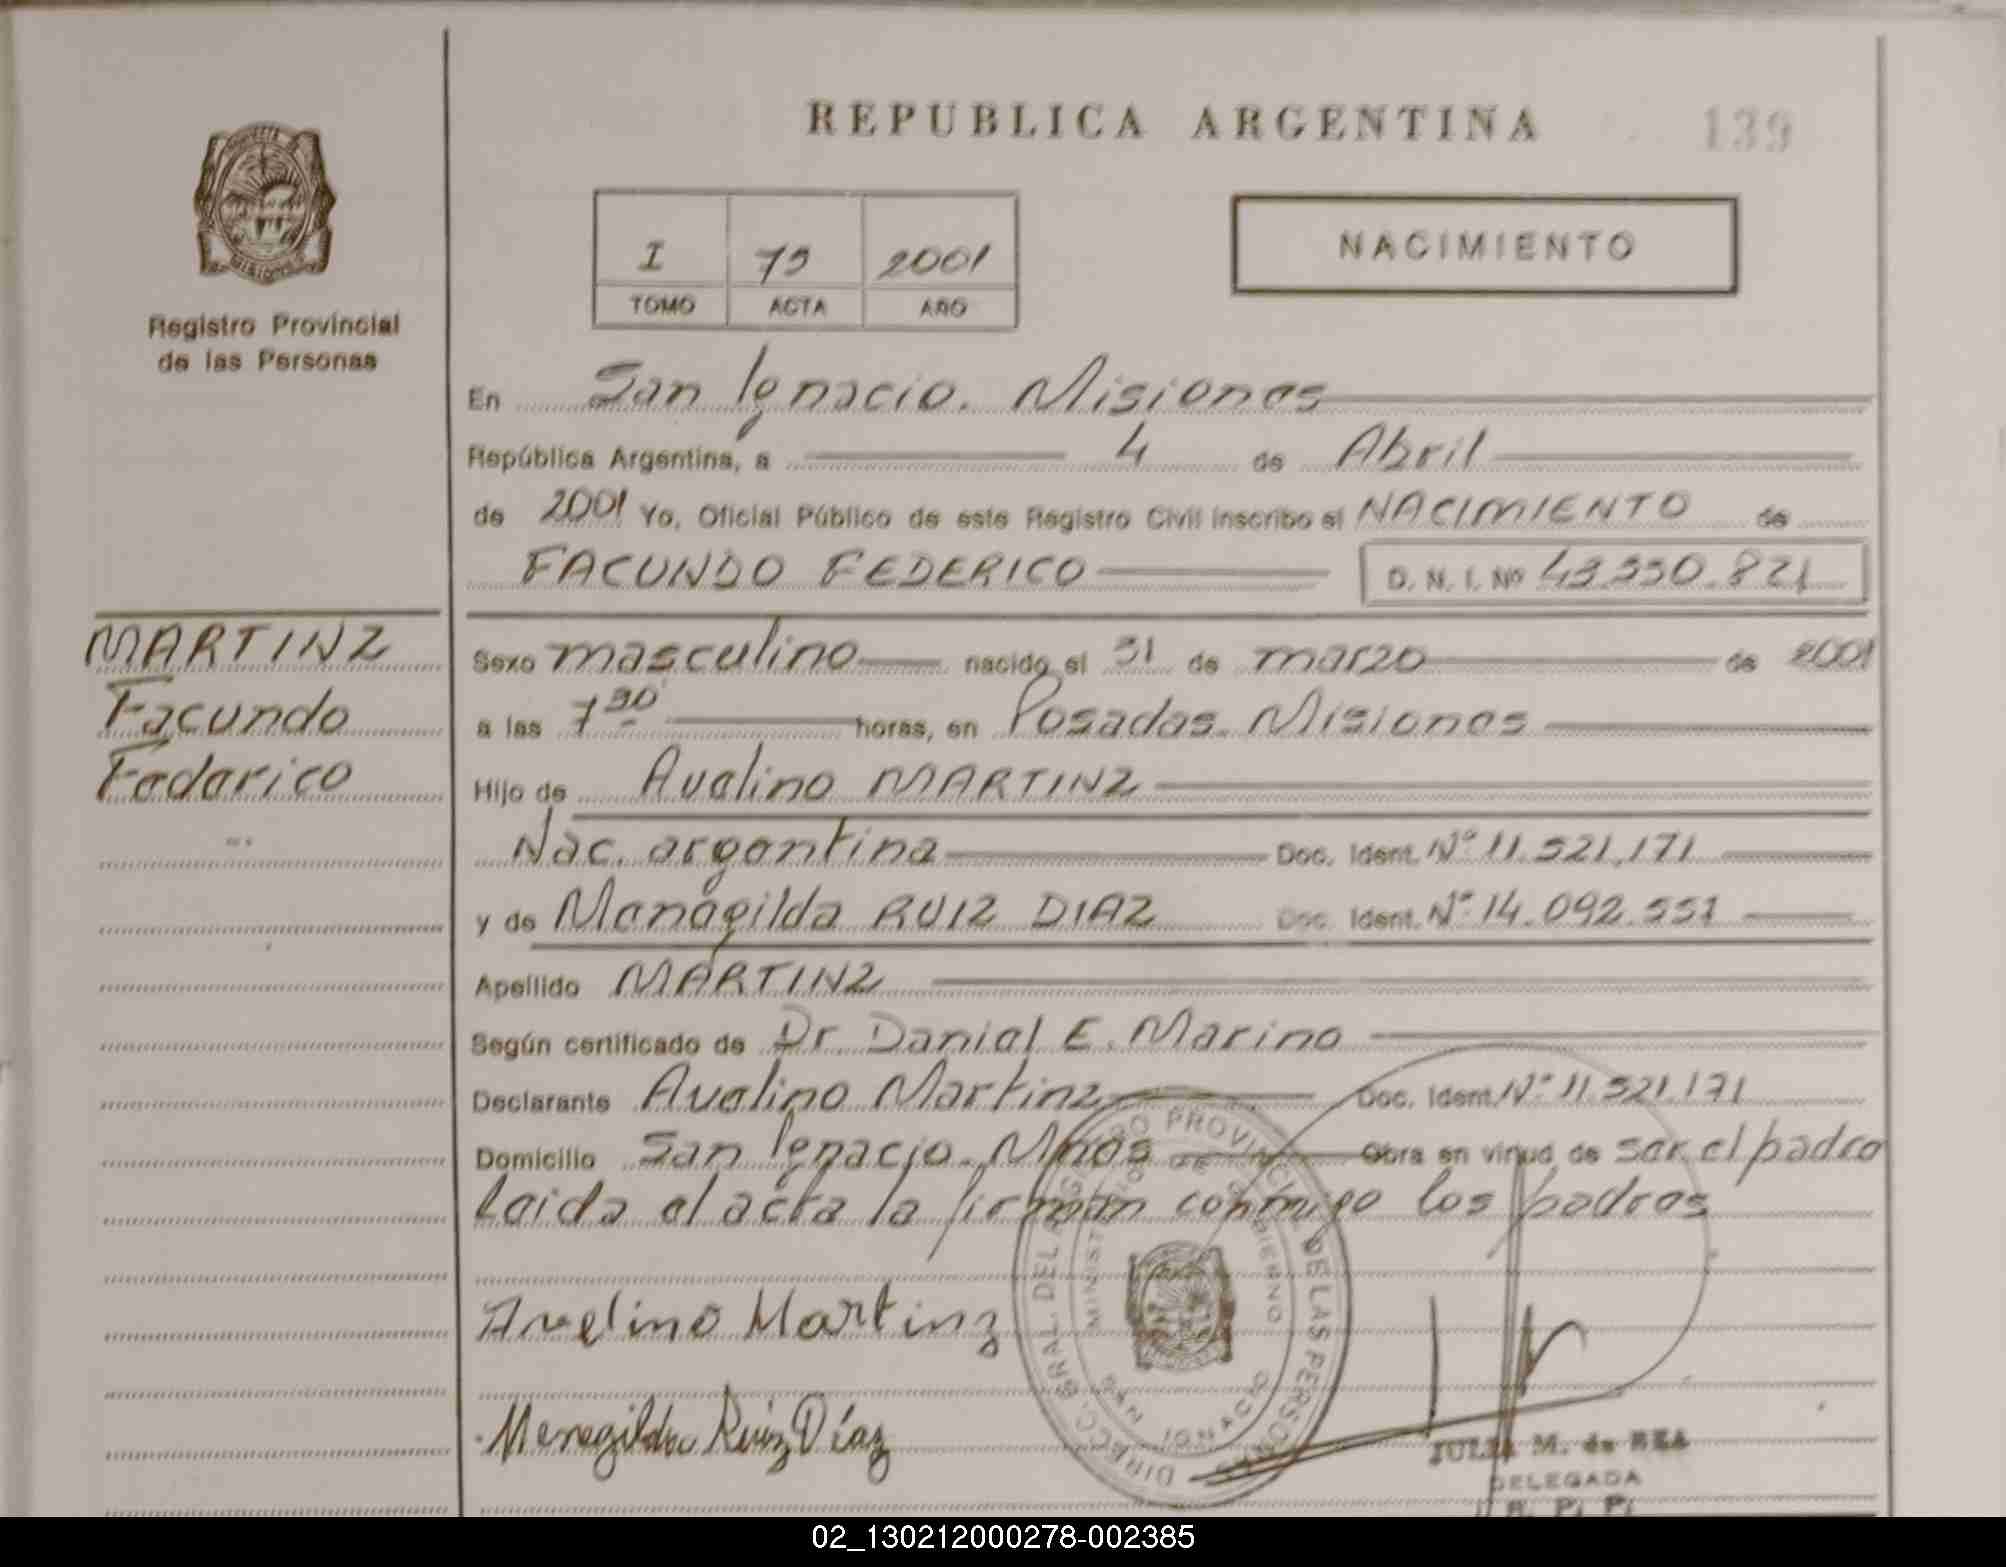 REPUBLICA ARGENTINA
139
MISIONES
Registro Provincial
de las Personas
I 79 2001
TOMO ACTA AÑO
NACIMIENTO
En San Ignacio. Misiones
República Argentina, a 4 de Abril
de 2001 Yo, Oficial Público de este Registro Civil inscribo el NACIMIENTO de
FACUNDO FEDERICO D. N. I. Nº 43.350.821
MARTINZ
Facundo
Federico
Sexo masculino nacido el 31 de marzo de 2001
a las 7 30 horas, en Posadas. Misiones
Hijo de Avelino MARTINZ
Nac. argentina Doc. Ident. Nº 11.521.171
y de Menegilda RUIZ DIAZ Doc. Ident. Nº 14.092.551
Apellido MARTINZ
Según certificado de Dr. Daniel E. Marino
Declarante Avelino Martinz Doc. Ident. Nº 11.521.171
Domicilio San Ignacio. Mnes Obra en virtud de ser el padre
Leida el acta la firman conmigo los padres
Avelino Martinz
Menegilda Ruiz Díaz
DIRECC. GRAL. DEL REGISTRO PROVINCIAL DE LAS PERSONAS
MINISTERIO DE GOBIERNO
SAN IGNACIO
JULIA M. de REA
DELEGADA
R. P. P.
02_130212000278-002385